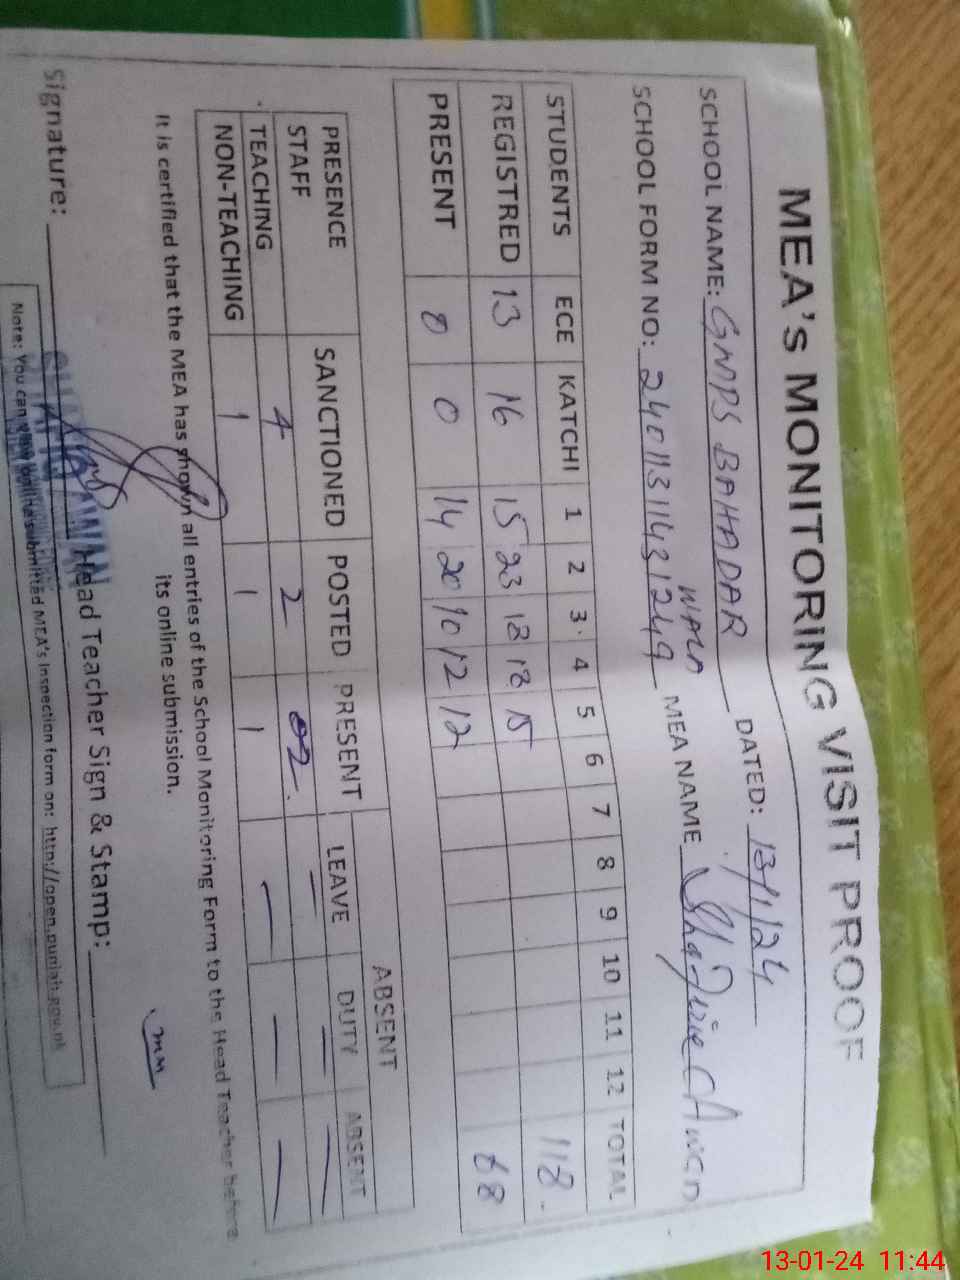 MEA's MONITORING VISIT PROOF
SCHOOL NAME: GMPS BAHADAR WALA DATED: 13/1/24
SCHOOL FORM NO: 24011311431249 MEA NAME
STUDENTS ECE KATCHI 1 2 3 4 5 6 7 8 9 10 11 12 TOTAL
REGISTRED 13 16 15 23 18 18 15 118
PRESENT 0 0 14 20 10 12 12 68
PRESENCE STAFF SANCTIONED POSTED PRESENT ABSENT
LEAVE DUTY ABSENT
TEACHING 4 2 02 — — —
NON-TEACHING 1 1 1 — — —
It is certified that the MEA has shown all entries of the School Monitoring Form to the Head Teacher before
its online submission.
Signature: Head Teacher Sign & Stamp:
Note: You can view online submitted MEA's Inspection form on: http://open.punjab.gov.pk
13-01-24 11:44